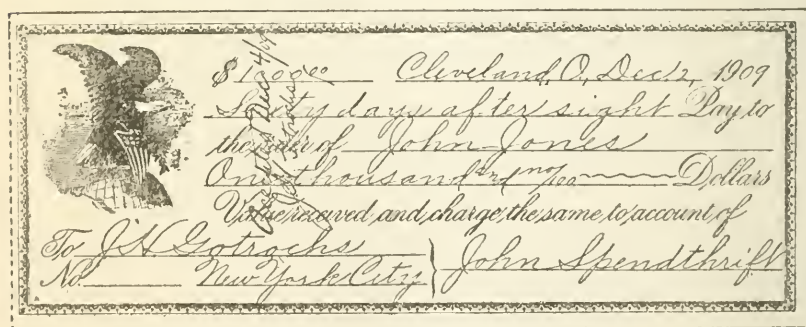 $1000.00 Cleveland, O, Dec 2, 1909
Sixty days after sight Pay to
the order of John Jones
One thousand and no/100 Dollars
Value received and charge the same to account of
To J H Gotrochs
No. New York City
John Spendthrift
Accepted Dec 4/09